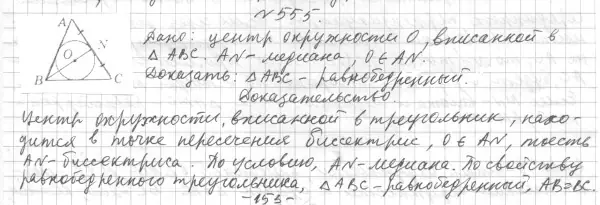 №555.
A
N
O
B
C
Дано: центр окружности O, вписанной в
△ABC. AN-медиана, O∈AN.
Доказать: △ABC - равнобедренный.
Доказательство.
Центр окружности, вписанной в треугольник, нахо-
дится в точке пересечения биссектрис, O∈AN, тоесть
AN-биссектриса. По условию, AN-медиана. По свойству
равнобедренного треугольника, △ABC-равнобедренный, AB=BC.
-153-